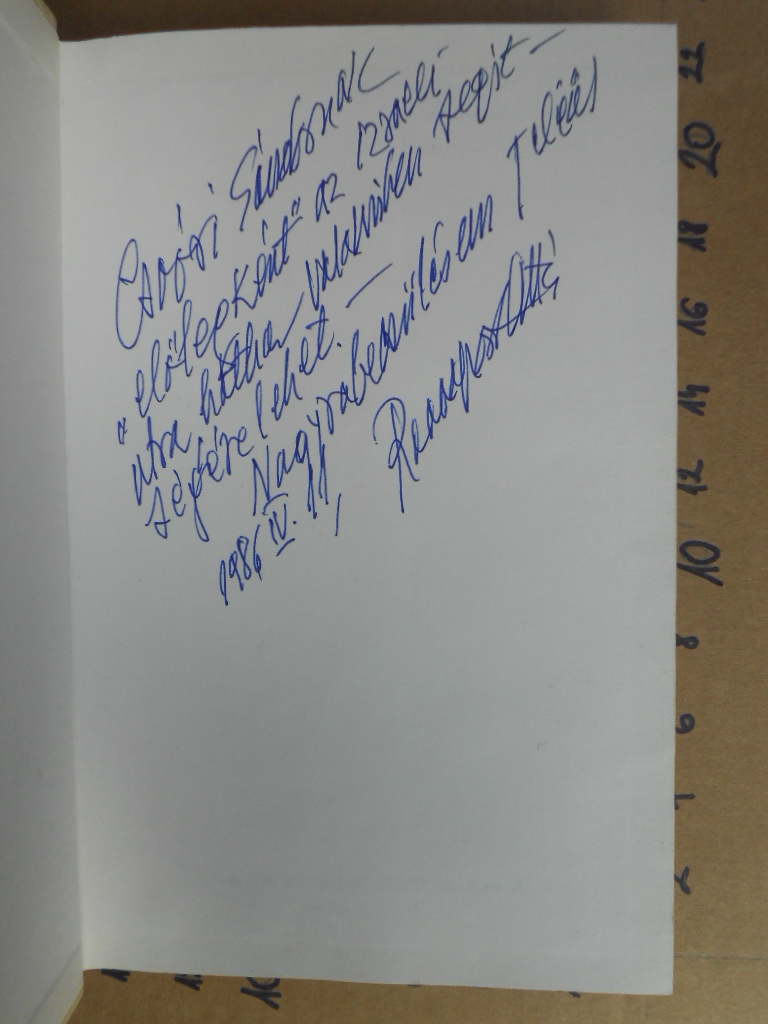 Csoóri Sándornak
"előlegként" az izraeli
útra hátha valamiben segít-
ségére lehet. —
Nagyrabecsülésem teljes
1986 IV. 11,
22
20
18
16
14
12
10
8
6
2